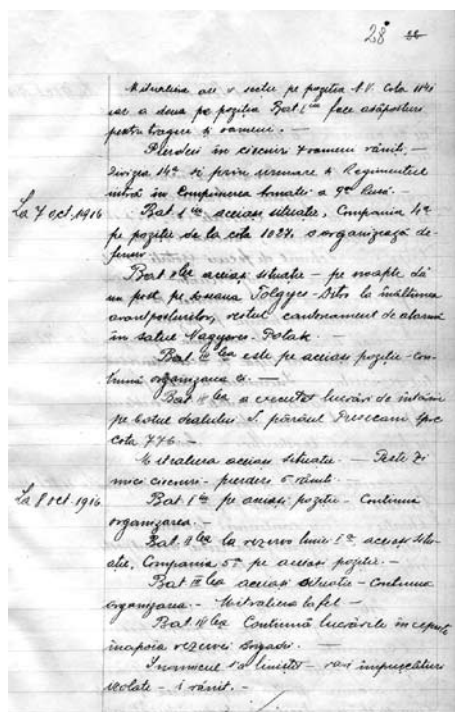 28
Mitraliera are o secție pe poziția N.V. Cota 1181
iar a doua pe poziția Bat I face adăposturi
pentru tragere și oameni. —
Pierderi în ciocniri 7 oameni răniți. —
Divizia 14ª și prin urmare și Regimentul
intră în Compunerea Armatei a 9ª Rusă. —
La 7 oct. 1916
Bat. I aceiași situație, Compania 4ª
pe poziție de la cota 1027. Se organizează de-
fensiv
Bat II lea aceiași situație — pe noapte dă
un post pe șoseaua Tölgyes - la înălțimea
avantposturilor, restul cantonament de alarmă
în satul Nagyores - Potak. —
Bat. III lea este pe aceiași poziție - con-
tinuă organizarea ei. —
Bat IV lea a executat lucrări de întărire
pe botul dealului S. pârâul spre
cota 776 —
Mitraliera aceiași situație. — Peste zi
mici ciocniri - pierderi 5 răniți. —
La 8 oct. 1916
Bat. I pe aceiași poziție - Continuă
organizarea. —
Bat. II lea la rezerva liniei I aceiași situ-
ație, Compania 5ª pe aceiași poziție. —
Bat III lea aceiași situație - Continuă
organizarea. - Mitraliera la fel —
Bat. IV lea Continuă lucrările începute
înapoia rezervei brigadii. —
Inamicul sta liniștit - rari împușcături
izolate - 1 rănit. —